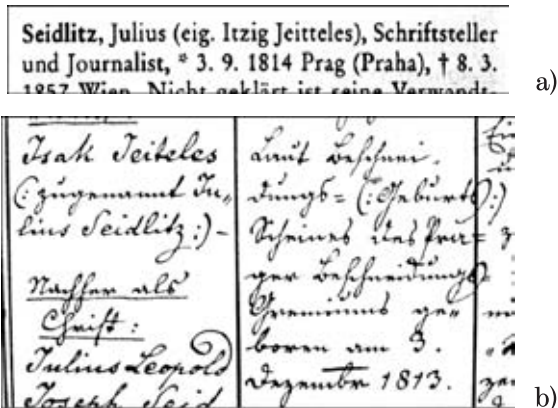 Seidlitz, Julius (eig. Itzig Jeitteles), Schriftsteller
und Journalist, * 3. 9. 1814 Prag (Praha), † 8. 3.
1857 Wien. Nicht geklärt ist seine Verwandt-
a)
Isak Jeiteles
(: zugenannt Ju„
lius Seidlitz :) –
Nachher als
Christ :
Julius Leopold
Joseph Seid
Laut Beschnei„
dungs= (: Geburts :)
Scheines des Pra=
ger Beschneidungs
Gremiums ge„
boren am 3.
Dezember 1813.
b)